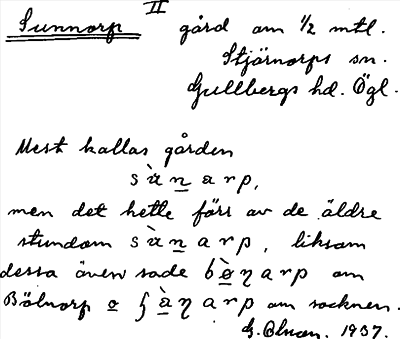 Sunnorp II gård om 1/2 mtl.
Stjärnorps sn.
Gullbergs hd. Ögl.
Mest kallas gården
sànarp,
men det hette förr av de äldre
stundom sànarp, liksom
dessa även sade bøŋarp om
Bölnorp o ʃàŋarp om socknen.
1937.